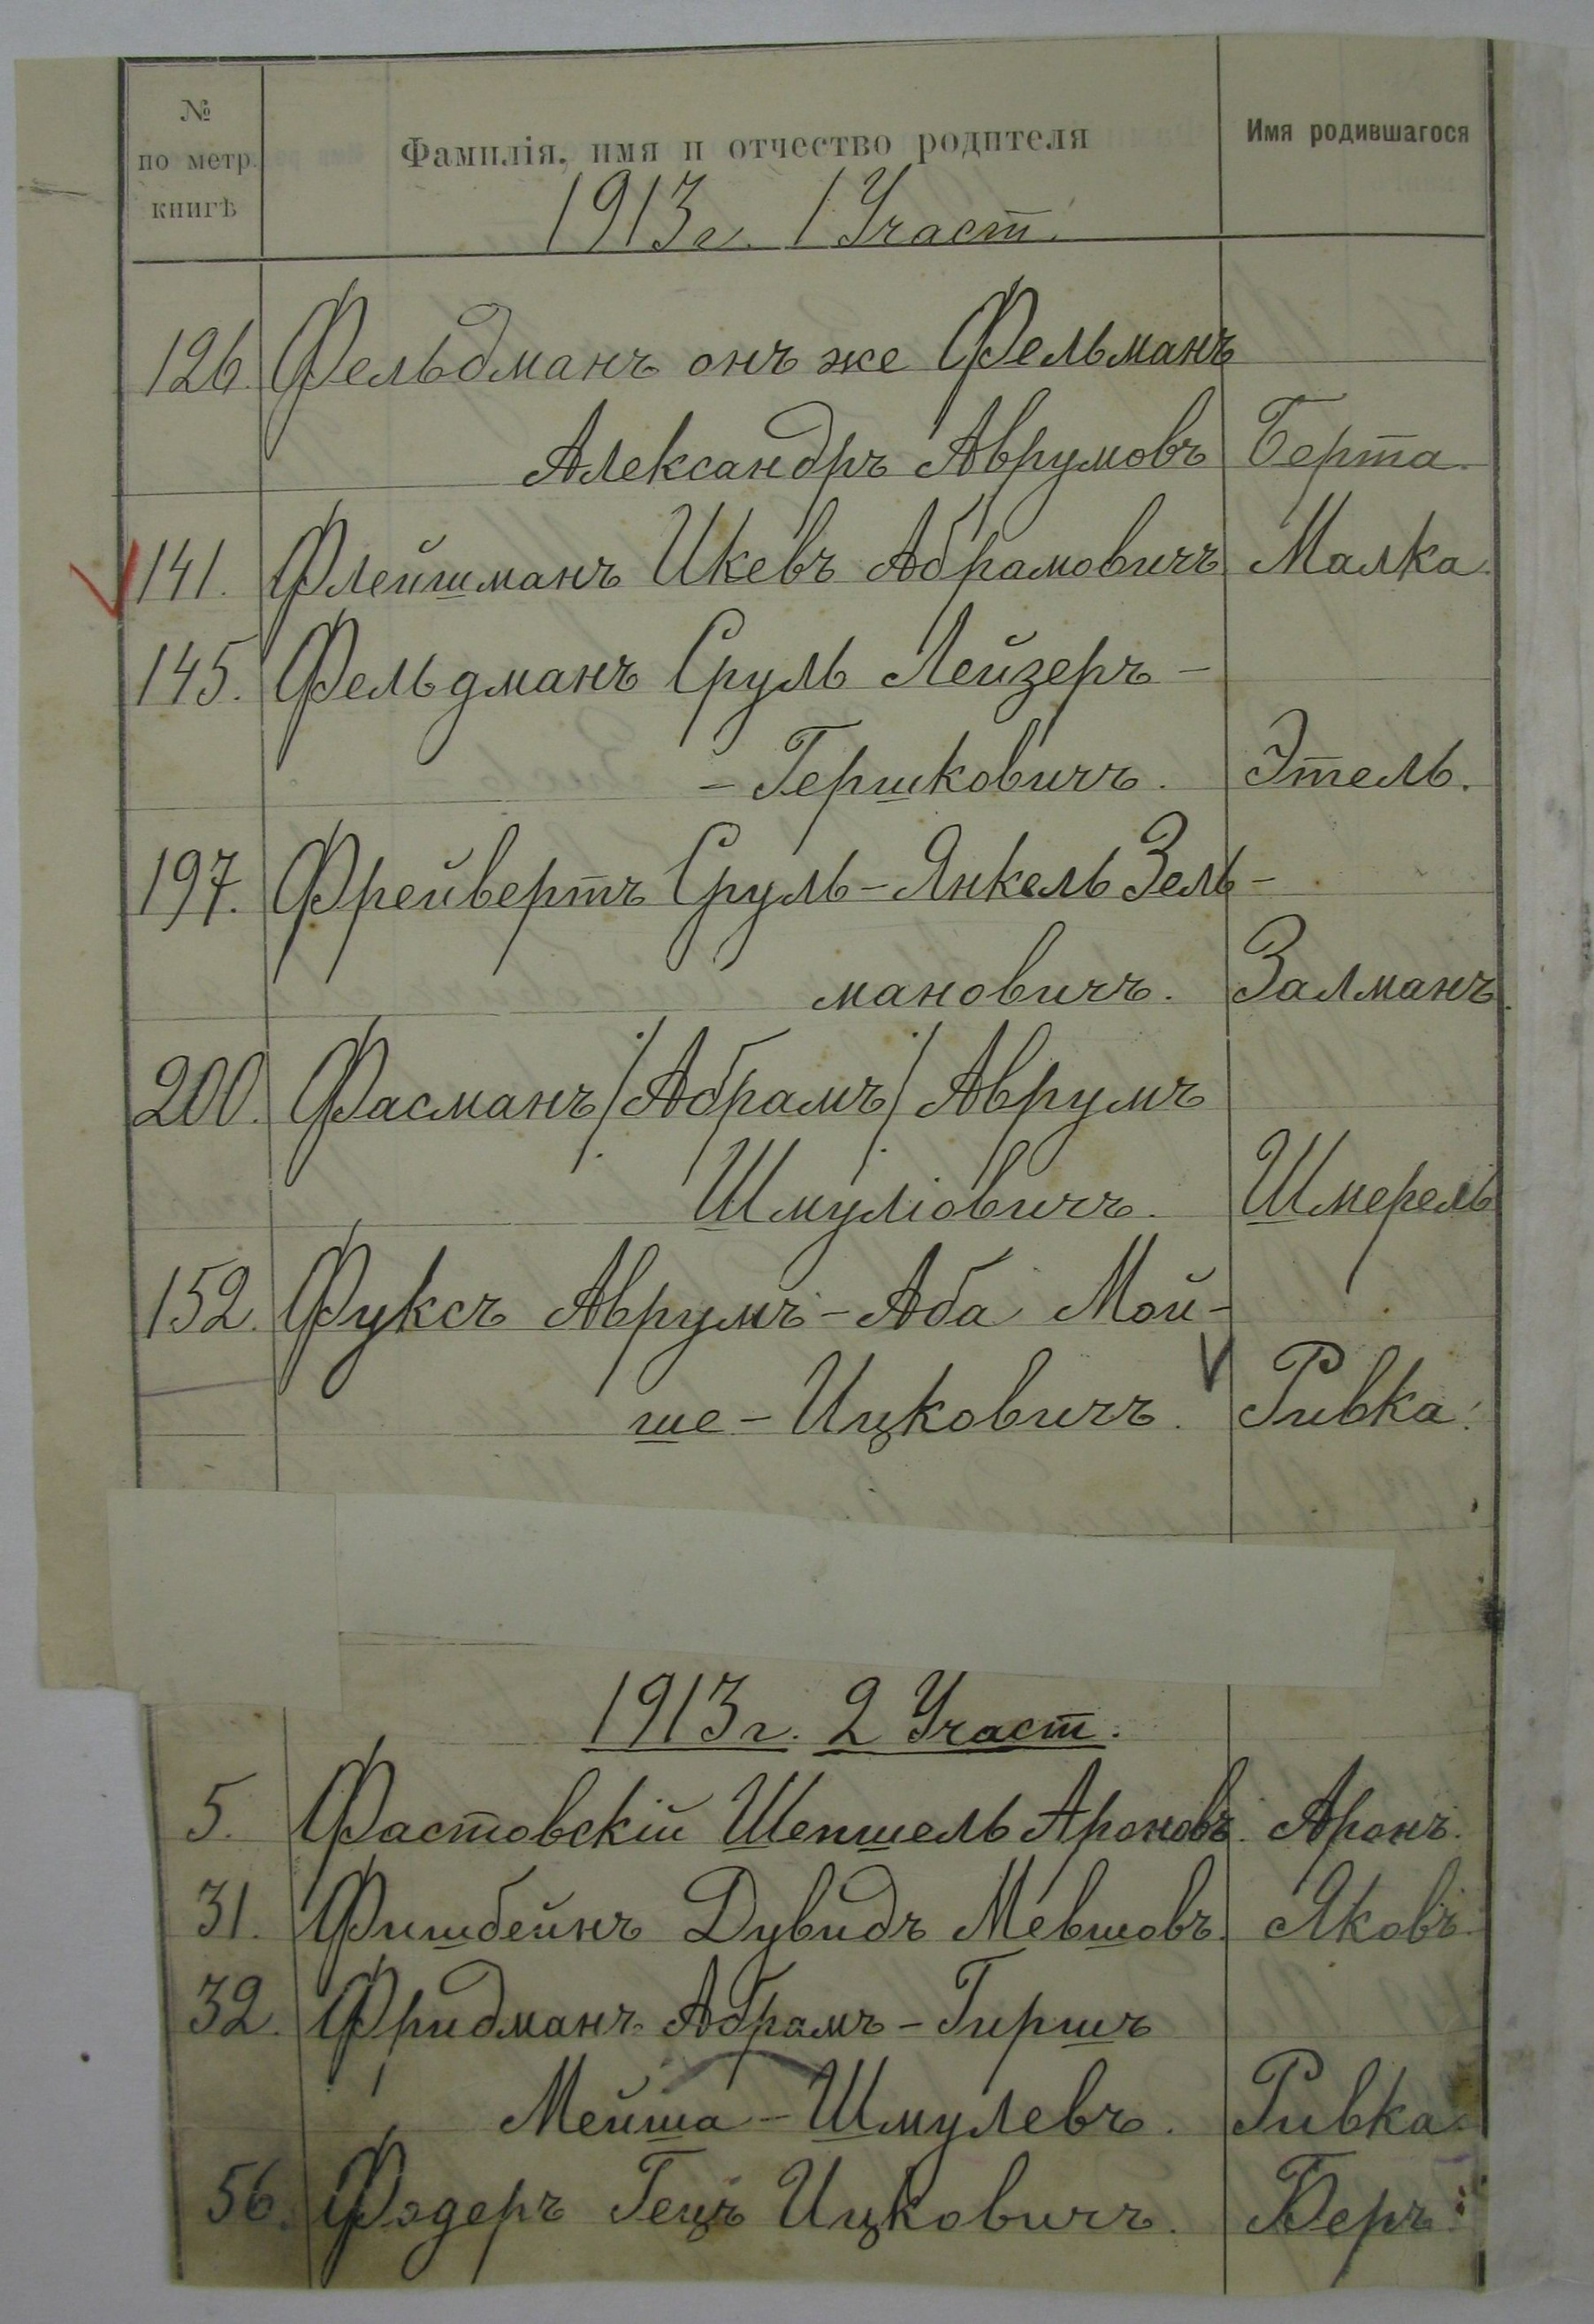 № по метр. книгѣ
Фамилія, имя и отчество родителя
Имя родившагося
1913 г. 1 Участ.
126. Фельдманъ онъ же Фельманъ
Александръ Аврумовъ Берта.
141. Флейшманъ Икевъ Абрамовичъ Малка.
145. Фельдманъ Сруль Лейзеръ-
-Гершковичъ. Этель.
197. Фрейвертъ Сруль-Янкель Зель-
мановичъ. Залманъ.
200. Фасманъ /Абрамъ/ Аврумъ
Шмуліовичъ. Шмерель
152. Фуксъ Аврумъ-Аба Мой-
ше-Ицковичъ. Ривка.
1913 г. 2 Участ.
5. Фастовскій Шепшель Ароновъ. Аронъ.
31. Фишбейнъ Дувидъ Мевшовъ. Яковъ.
32. Фридманъ Абрамъ-Гиршъ
Мейша-Шмулевъ. Ривка.
56. Фэдеръ Гецъ Ицковичъ. Беръ.